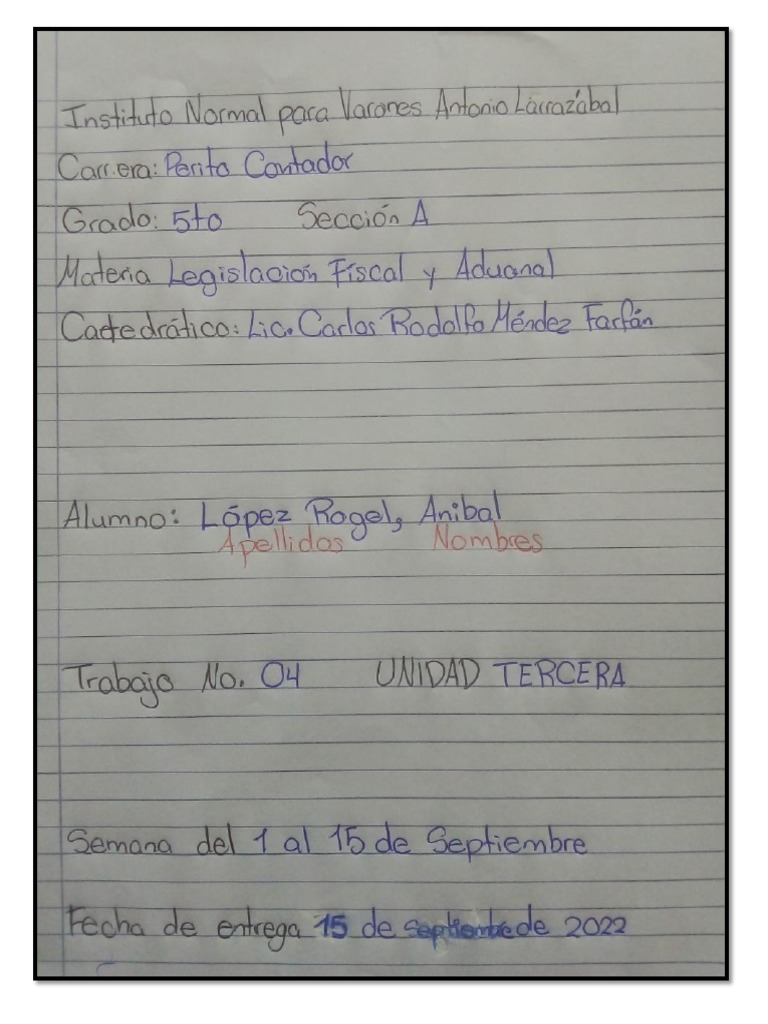 Instituto Normal para Varones Antonio Larrazábal
Carrera: Perito Contador
Grado: 5to Sección A
Materia Legislación Fiscal y Aduanal
Catedrático: Lic. Carlos Rodolfo Méndez Farfán
Alumno: López Rogel, Anibal
Apellidos Nombres
Trabajo No. 04 UNIDAD TERCERA
Semana del 1 al 15 de Septiembre
Fecha de entrega 15 de septiembre de 2022